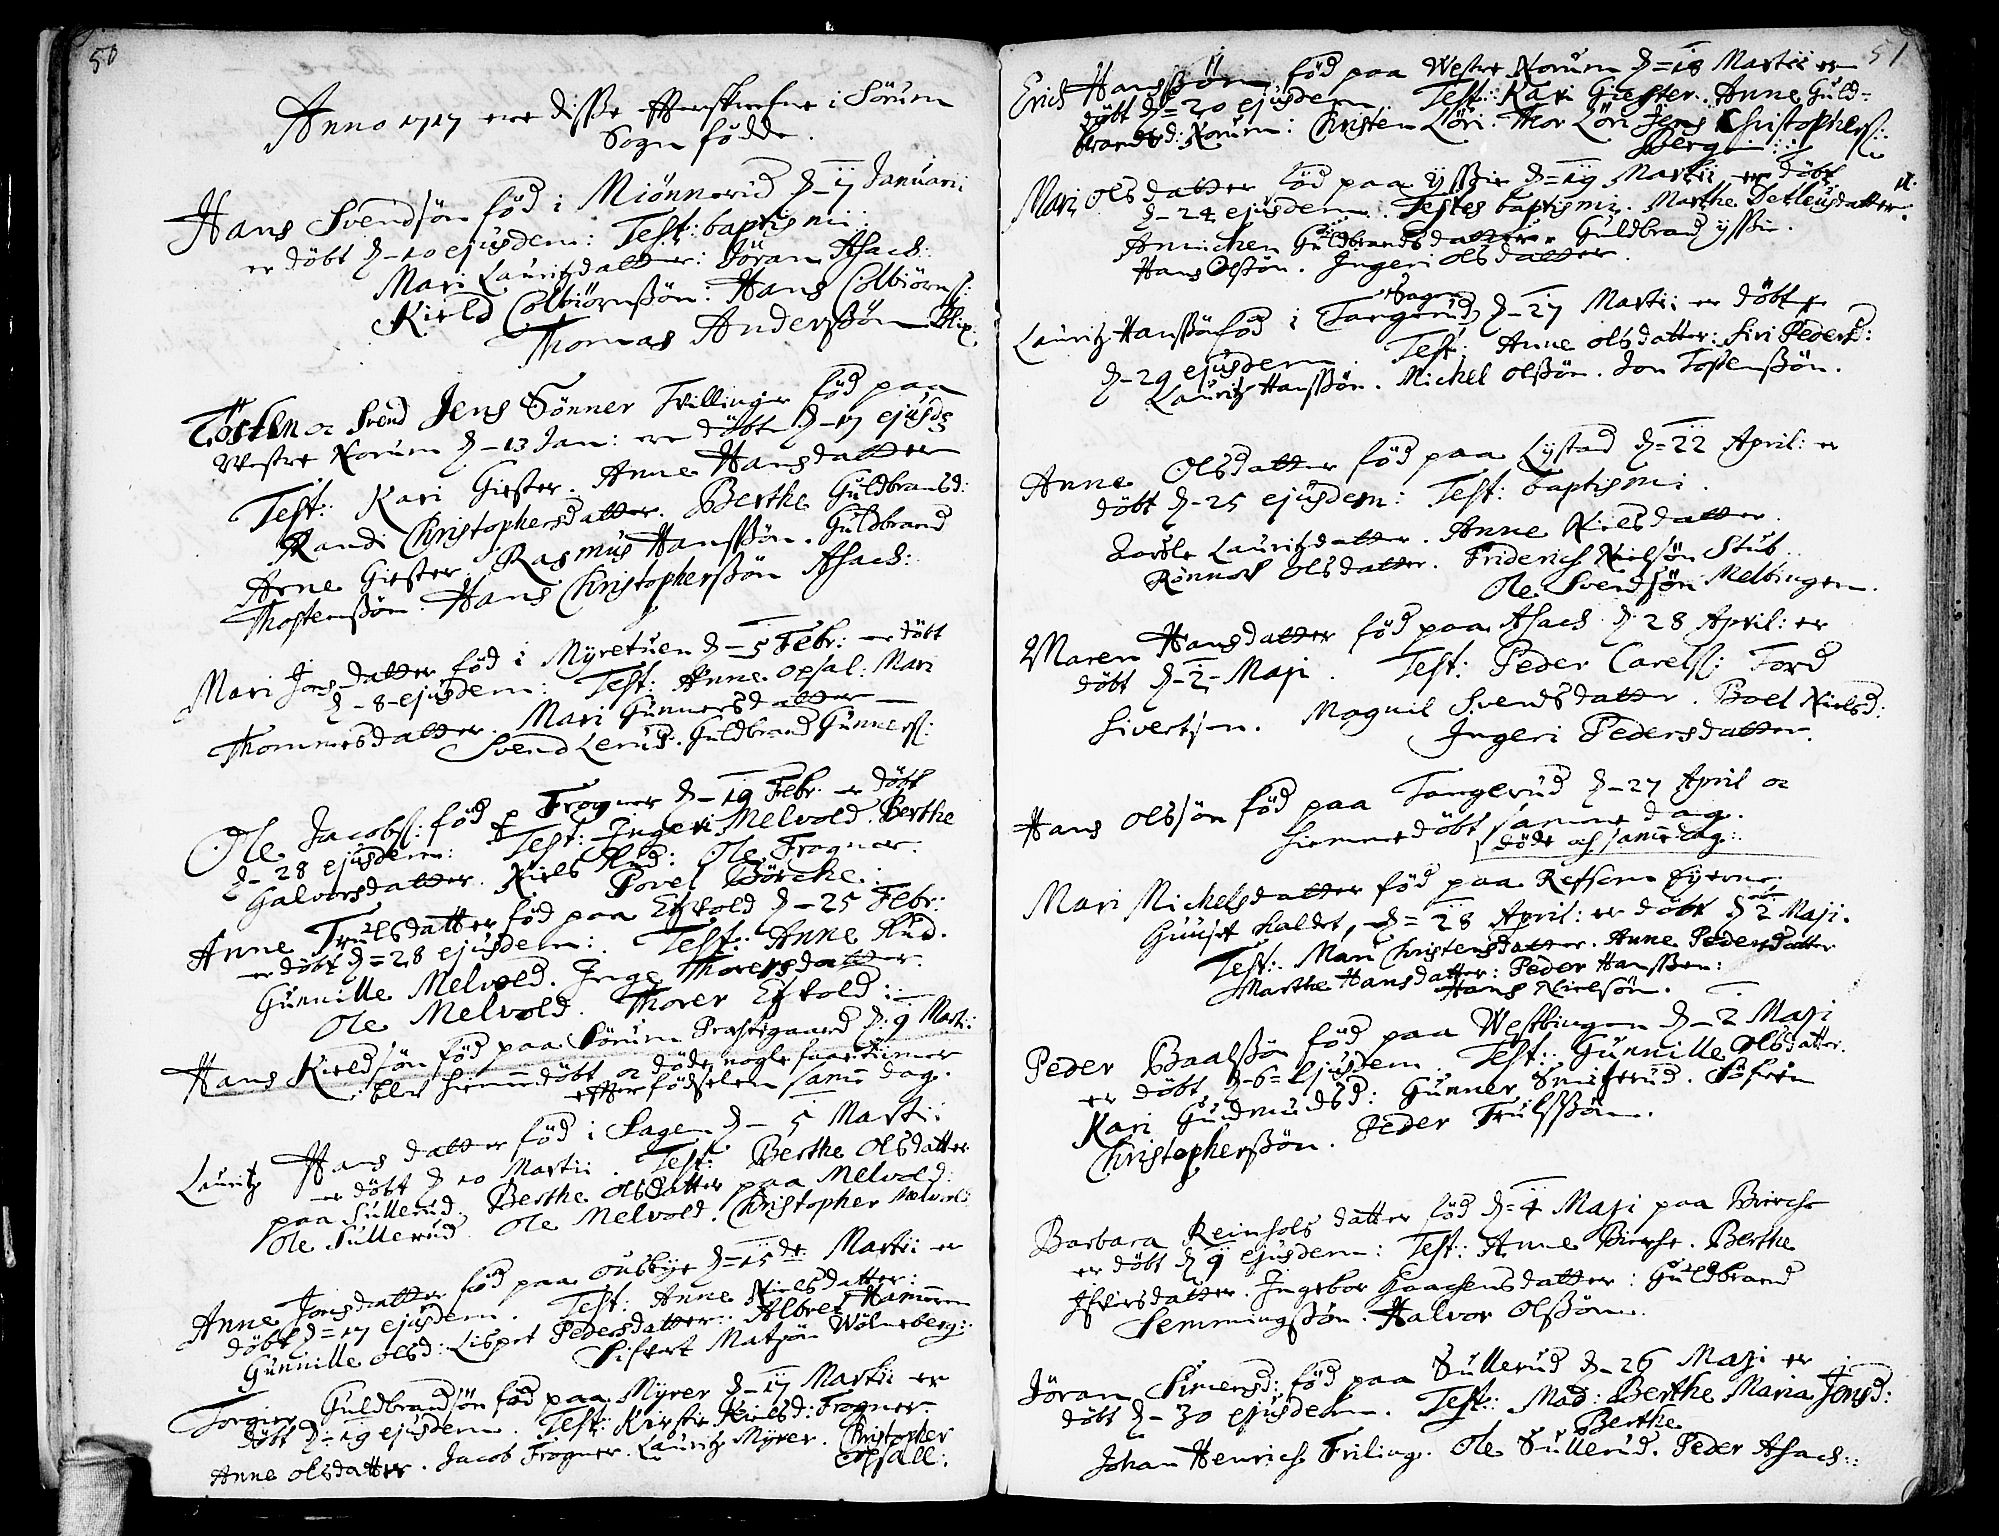 50
Anno 1717 ere disse effterskrefne i Sörum
Sogn födde.
Hans Svendsön föd i Miönnerid d_ 7 Januarii
er döbt d_10 ejusdem: Test: baptismi:
Mari Lauritzdatter: Jöran Asach:
Kield Colbiörnssön: Hans Colbiörnss:
Thomas Anderssön
Tosten oc Svend Jens Sönner Tvillinger föd paa
Westre Norum d_13 Jan: ere döbte d_17 ejusd:
Test: Kari Giester. Anne Hansdatter
Randi Christophersdatter. Berthe Guldbransd:
Arne Giester. Rasmus Hanssön. Guldbrand
Thostenssön. Hans Christopherssön Asach:
Mari Jonsdatter föd i Myretuen d_5 Febr: er döbt
d_8_ejusdem: Test: Anne Opsal: Mari
Thommesdatter. Mari Gunnersdatter
Svend Lerud. Guldbrand Gunnerss:
Ole Jacobss: föd p Frogner d_19 Febr. er döbt
d_28 ejusdem: Test: Ingeri Melvold. Berthe
Galvorsdatter. Niels Rud: Ole Frogner:
Povel Börche:
Anne Trulsdatter föd paa Eskold d_25 Febr:
er döbt d=28 ejusdem: Test: Anne Rud.
Gunnille Melvold. Inge Thorersdatter.
Ole Melvold. Thorer Eskold:
Hans Kieldsön föd paa Sörum Præstegaard d: 9 Marti:
blev hiemmedöbt oc döde nogle faae tiimer
effter födselen samme dag.
Lauritz Hansdatter föd i Sagen d_ 5 Martii
er döbt d 10 Martii. Test: Berthe Olsdatter
paa Sullerud. Berthe Olsdatter paa Melvold:
Ole Sullerud. Ole Melvold. Christopher Melvold:
Anne Jonsdatter föd paa Ousbye d=15de Martii er
döbt d=17 ejusdem. Test: Anne Nielsdatter:
Gunnille Olsd: Lispet Pedersdatter: Albret Hammeren
Sifvert Matzön Wölneberg:
Torgier Guldbrandsön föd paa Myrer d_17 Martii er
döbt d_19 ejusdem. Test: Kirstie Nielsd: Frogner
Anne Olsdatter. Jacob Frogner. Lauritz Myrer. Christopher
Opsall:
51
Erich Hanssön föd paa Westre Norum d=18 Martii er
döbt d=20 ejusdem. Test: Kari Giester. Anne Guld=
brandsd: Norum: Christen Löri: Thor Löri Jens Christopherss:
Berg
Mari Olsdatter föd paa Yssie d=19 Martii er döbt
d_24 ejusdem. Testes baptismi. Marthe Detleusdatter.
Annichen Guldbrandsdatter. Guldbrand Yssie.
Hans Olssön. Ingeri Olsdatter.
Sagen
Lauritz Hanssön föd i Tangerud d_27 Martii er döbt
d_29 ejusdem. Test: Anne Olsdatter: Siri Pedersd:
Lauritz Hanssön. Michel Olssön. Jon Tostenssön.
Anne Olsdatter föd paa Lystad d=22 April: er
döbt d_25 ejusdem: Test: baptismi.
Lauritzdatter. Anne Nielsdatter.
Rönnov Olsdatter. Friderich Nielsön Stub.
Ole Svendsön Melbingen.
Maren Hansdatter föd paa Asach d: 28 April: er
döbt d_2_Maji. Test: Peder Carelss: Ford
Sivertsen. Magnil Svendsdatter. Boel Nielsd:
Ingeri Pedersdatter.
Hans Olssön föd paa Tangerud d_27 April oc
hiemmedöbt samme dag.
döde och samme dag:
Mari Michelsdatter föd paa Refsem Eyerne
Guuset kaldet, d= 28 April: er döbt d 2 Maji.
Test: Mari Christensdatter. Anne Pedersdatter
Marthe Hansdatter: Peder Hanssen:
Hans Nielsön.
Peder Baalssön föd paa Westbingen d_2 Maji
er döbt d_6=Ejusdem. Test: Gunnille Olsdatter.
Kari Gudmundsd: Gunner Smiherud. Söfren
Christopherssön. Peder Trulssön.
Barbara Reinholsdatter föd d=4 Maji paa Bierche
er döbt d 9 ejusdem: Test: Anne Bierche. Berthe
Ifversdatter. Ingebor Haachensdatter: Guldbrand
Semmingssön. Halvor Olssön.
Jöran Simensd: föd paa Sullerud d_26 Maji er
döbt d_30 ejusdem. Test: Mad: Berthe Maria Jonsd:
Berthe
Johan Henrich Friling. Ole Sullerud. Peder Asach: